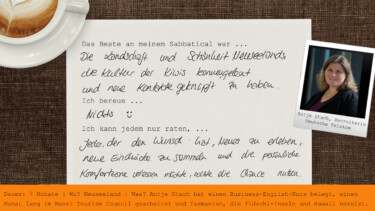 Das Beste an meinem Sabbatical war ...
Die Landschaft und Schönheit Neuseelands,
die Kultur der Kiwis kennengelernt
und neue Kontakte geknüpft zu haben
Ich bereue ...
Nichts
Ich kann jedem nur raten, ...
Jeder, der den Wunsch hat, Neues zu erleben,
neue Eindrücke zu sammeln und die persönliche
Komfortzone verlassen möchte, sollte die Chance nutzen.
Antje Stach, Recruiterin
Deutsche Telekom
Dauer: Monate | Wo? Neuseeland | Was? Antje Stach hat einen Business-English-Kurs belegt, einen
Monat lang im Maori Tourism Council gearbeitet und Tasmanien, die Fidschi-Inseln und Hawaii bereist.